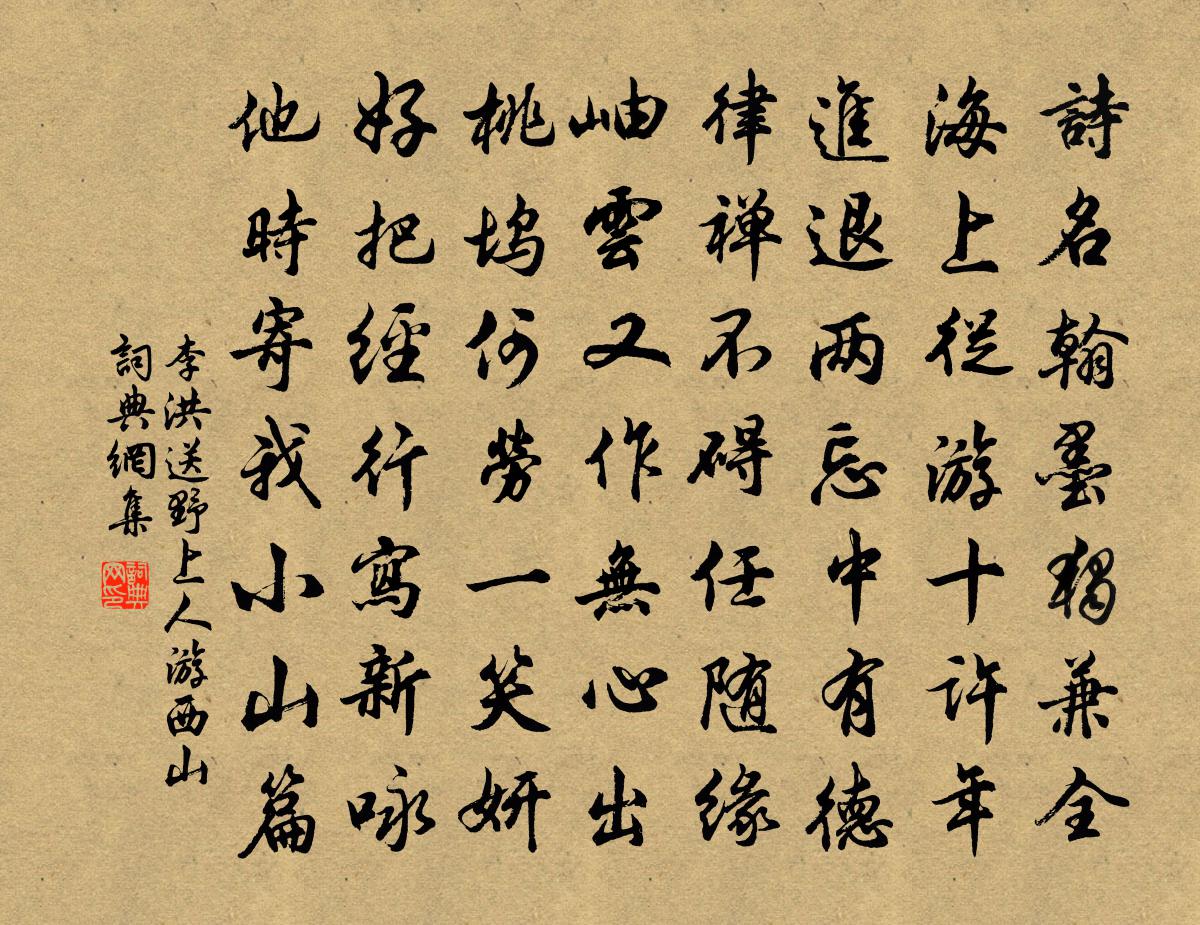 詩名翰墨獨兼全
海上從游十許年
進退两忘中有德
律禅不碍任随緣
岫雲又作無心出
桃坞何勞一笑妍
好把經行寫新咏
他時寄我小山篇
李洪送野上人游西山
詞典網集
詞典网印